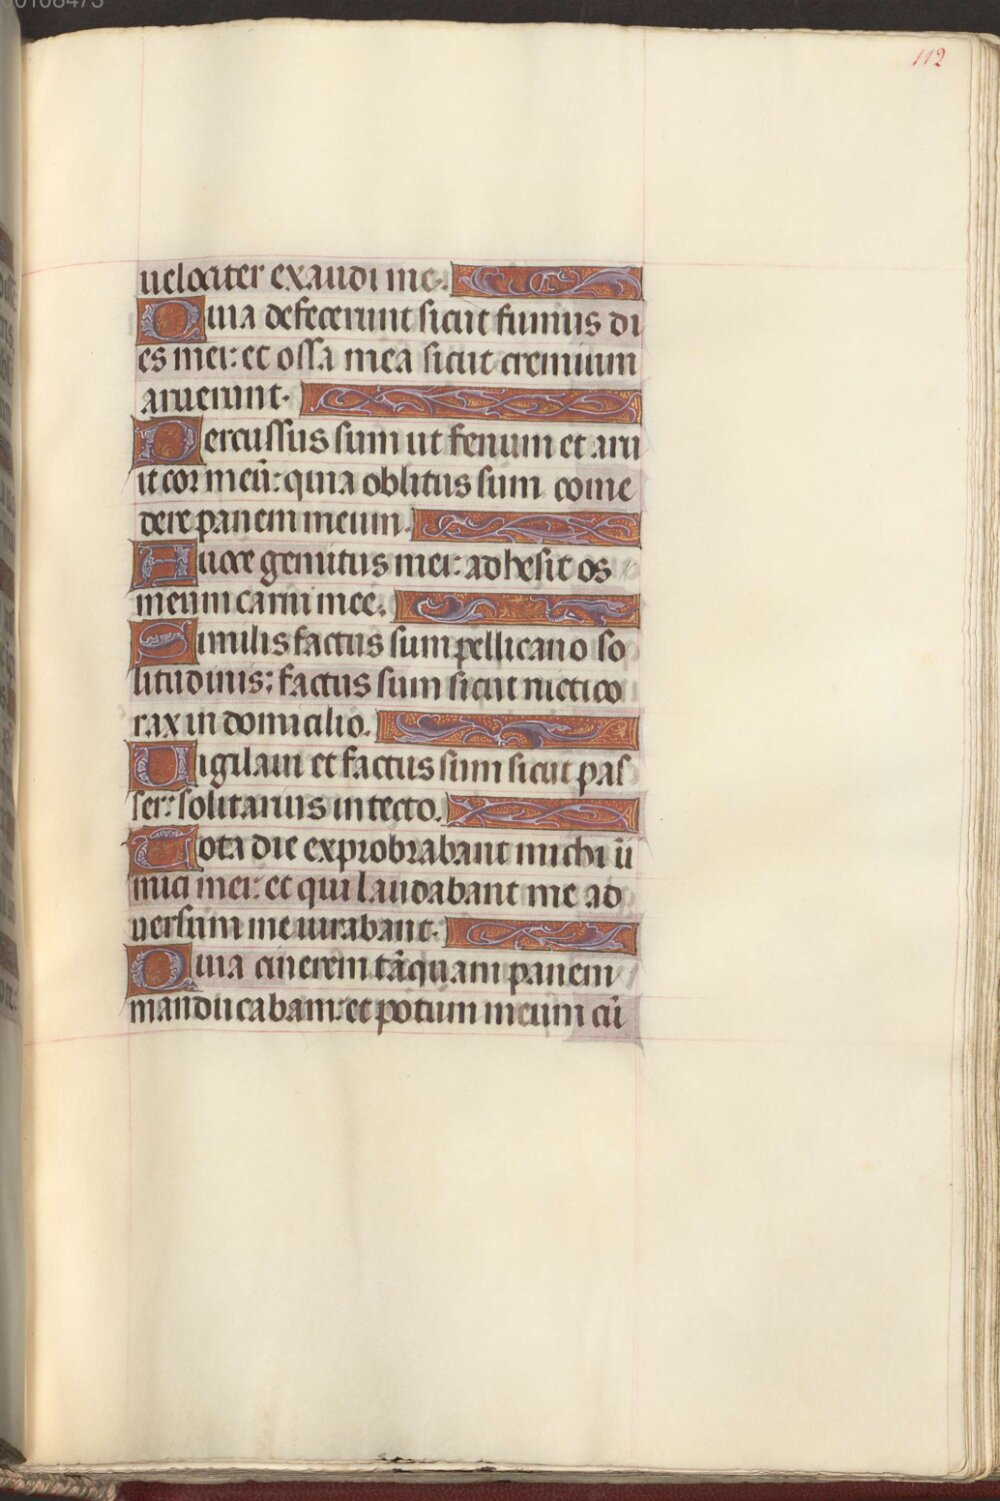 112
uelociter exaudi me.
Quia defecerunt sicut fumus di
es mei: et ossa mea sicut cremium
aruerunt.
Percussus sum ut fenum et aru
it cor meū: quia oblitus sum come
dere panem meum.
A uoce gemitus mei: adhesit os
meum carni mee.
Similis factus sum pellicano so
litudinis: factus sum sicut nictico
rax in domicilio.
Uigilaui et factus sum sicut pas
ser: solitarius in tecto.
Tota die exprobrabant michi ii
mici mei: et qui laudabant me ad
uersum me iurabant.
Quia cinerem tāquam panem
manducabam: et potum meum cū